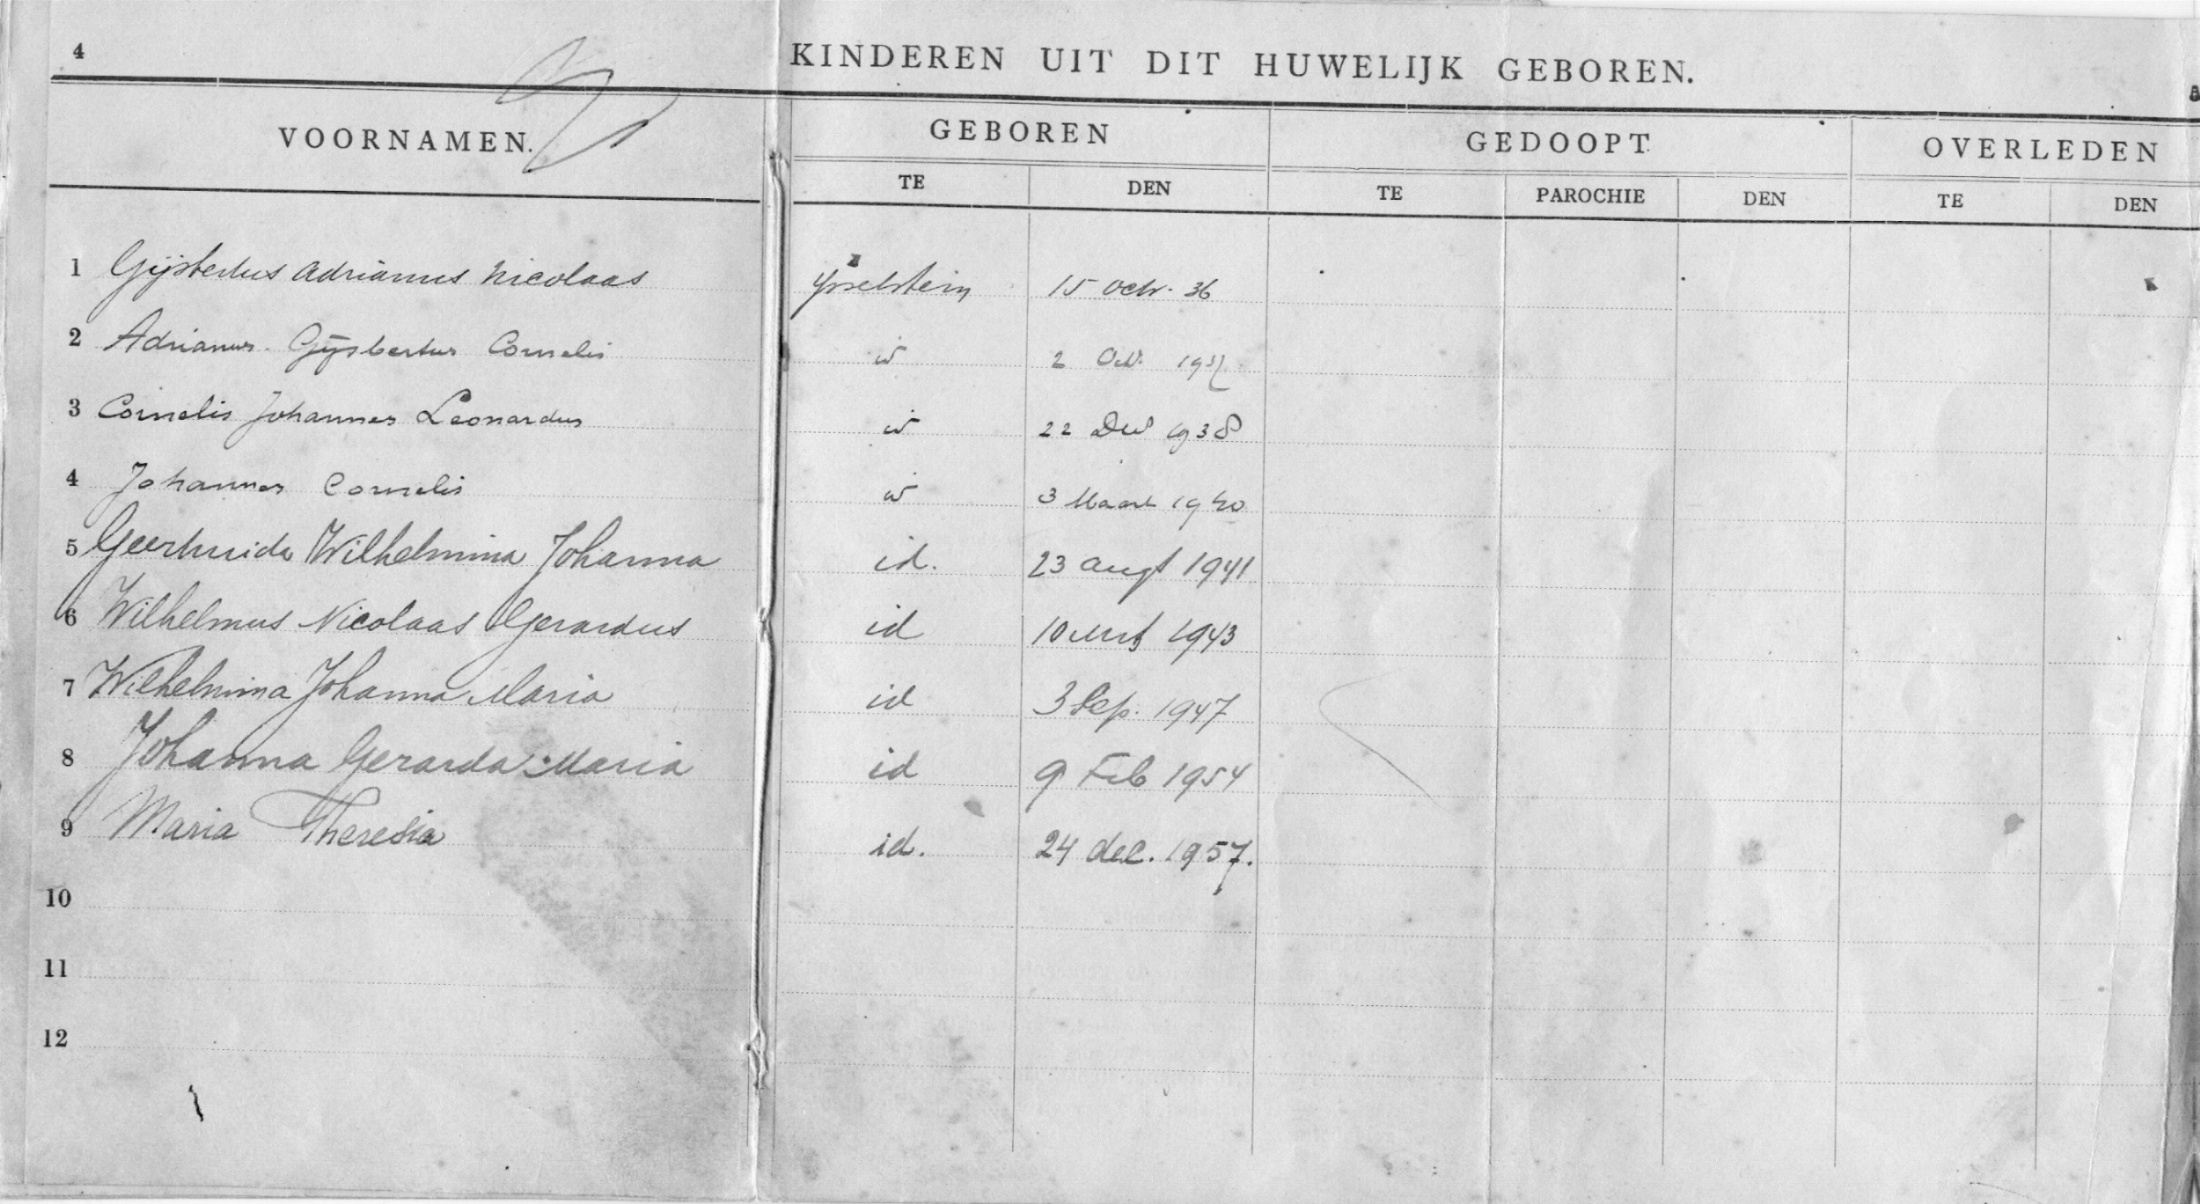 4
KINDEREN UIT DIT HUWELIJK GEBOREN.
VOORNAMEN. GEBOREN GEDOOPT OVERLEDEN
TE DEN TE PAROCHIE DEN TE DEN
1 Gijsbertus Adrianus Nicolaas Ysselstein 15 Octr. 36
2 Adrianus Gijsbertus Cornelis id 2 Oct. 1937
3 Cornelis Johannes Leonardus id 22 Dec 1938
4 Johannes Cornelis id 3 Maart 1940
5 Geertruida Wilhelmina Johanna id. 23 augt 1941
6 Wilhelmus Nicolaas Gerardus id 10 1943
7 Wilhelmina Johanna Maria id 3 Sep. 1947
8 Johanna Gerarda Maria id 9 Feb 1954
9 Maria Theresia id. 24 dec. 1957.
10
11
12